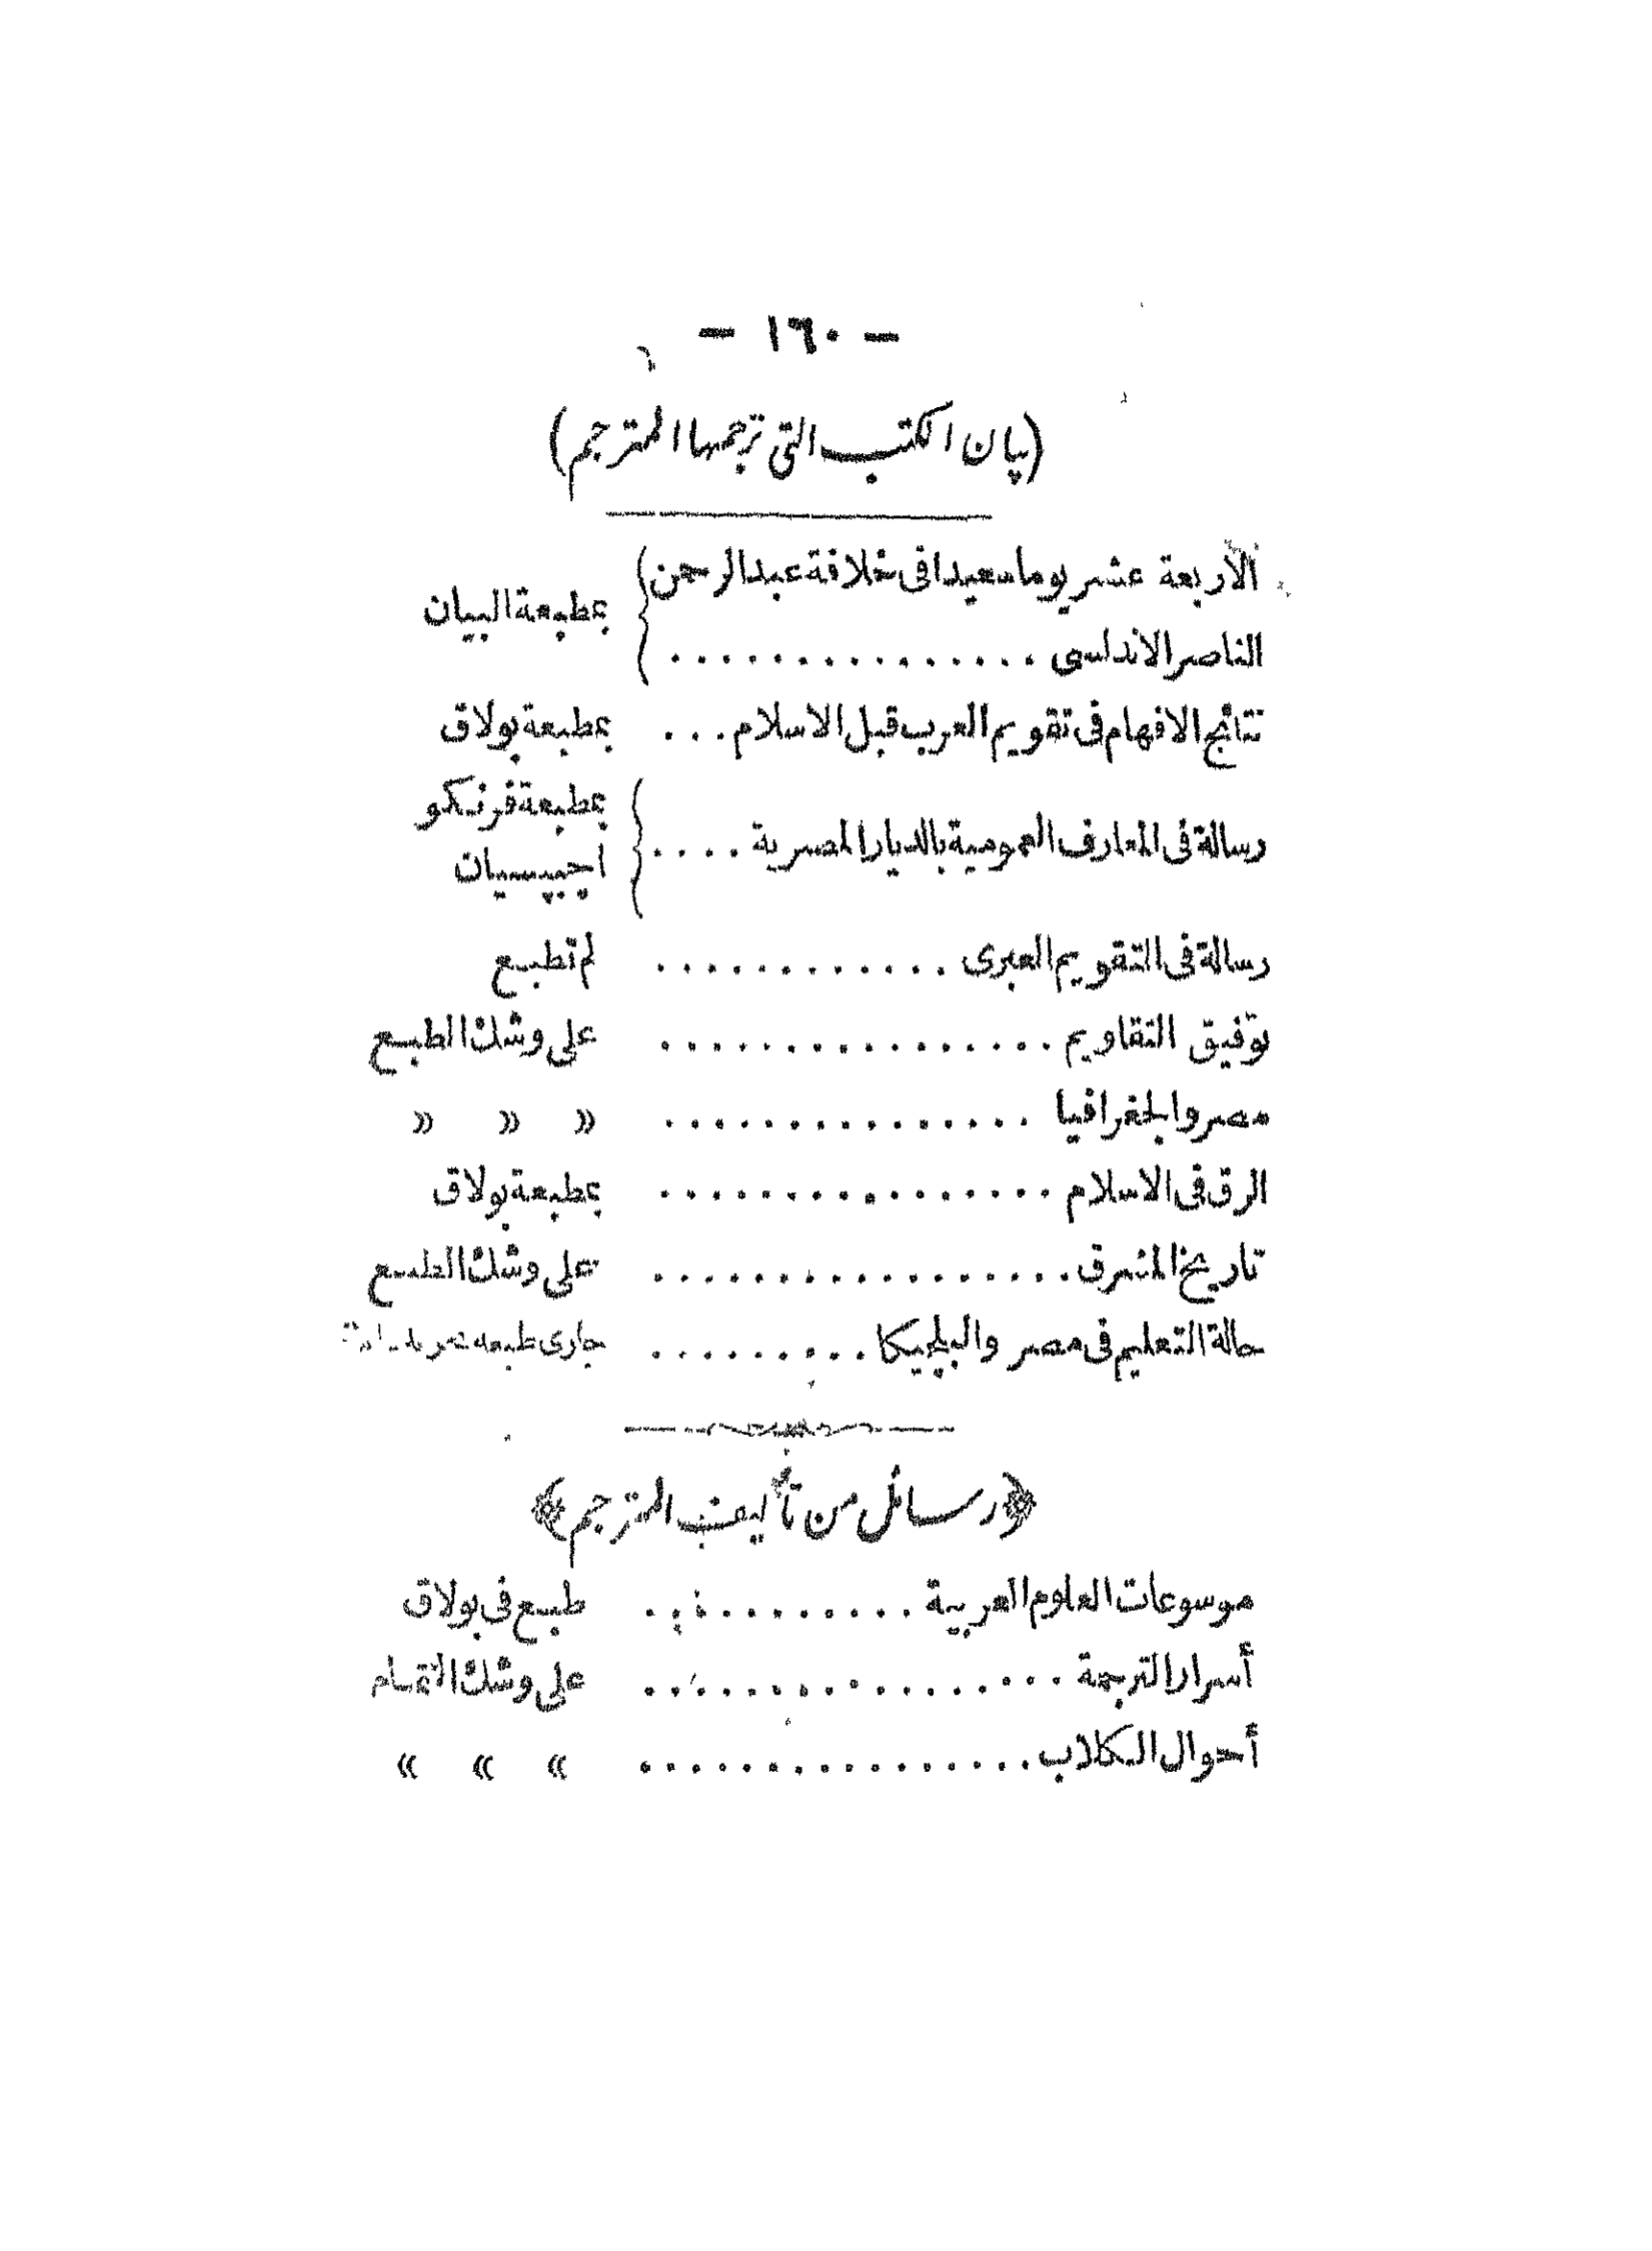 — ١٦٠ —
(بيان الكتب التي ترجمها المترجم)
الأربعة عشر يوما سعيدا فى خلافة عبد الرحمن
الناصر الاندلسى . . . . . . . . . . . . . . . بمطبعة البيان
نتائج الافهام فى تقويم العرب قبل الاسلام . . . بمطبعة بولاق
رسالة فى المعارف العمومية بالديار المصرية . . . . بمطبعة فرنكو
اجيپسيان
رسالة فى التقويم العبرى . . . . . . . . . . . . لم تطبع
توفيق التقاويم . . . . . . . . . . . . . . . . على وشك الطبع
مصر والجغرافيا . . . . . . . . . . . . . . . » » »
الرق فى الاسلام . . . . . . . . . . . . . . . . بمطبعة بولاق
تاريخ المشرق . . . . . . . . . . . . . . . . . على وشك الطبع
حالة التعليم فى مصر والبلچيكا . . . . . . . . . جارى طبعه
﴿رسائل من تأليف المترجم﴾
موسوعات العلوم العربية . . . . . . . . . . . طبع فى بولاق
أسرار الترجمة . . . . . . . . . . . . . . . . . على وشك التمام
أحوال الكلاب . . . . . . . . . . . . . . . . « « «